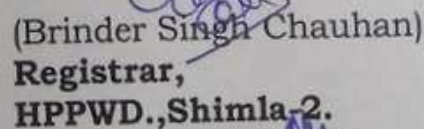 (Brinder Singh Chauhan)
Registrar,
HPPWD.,Shimla-2.